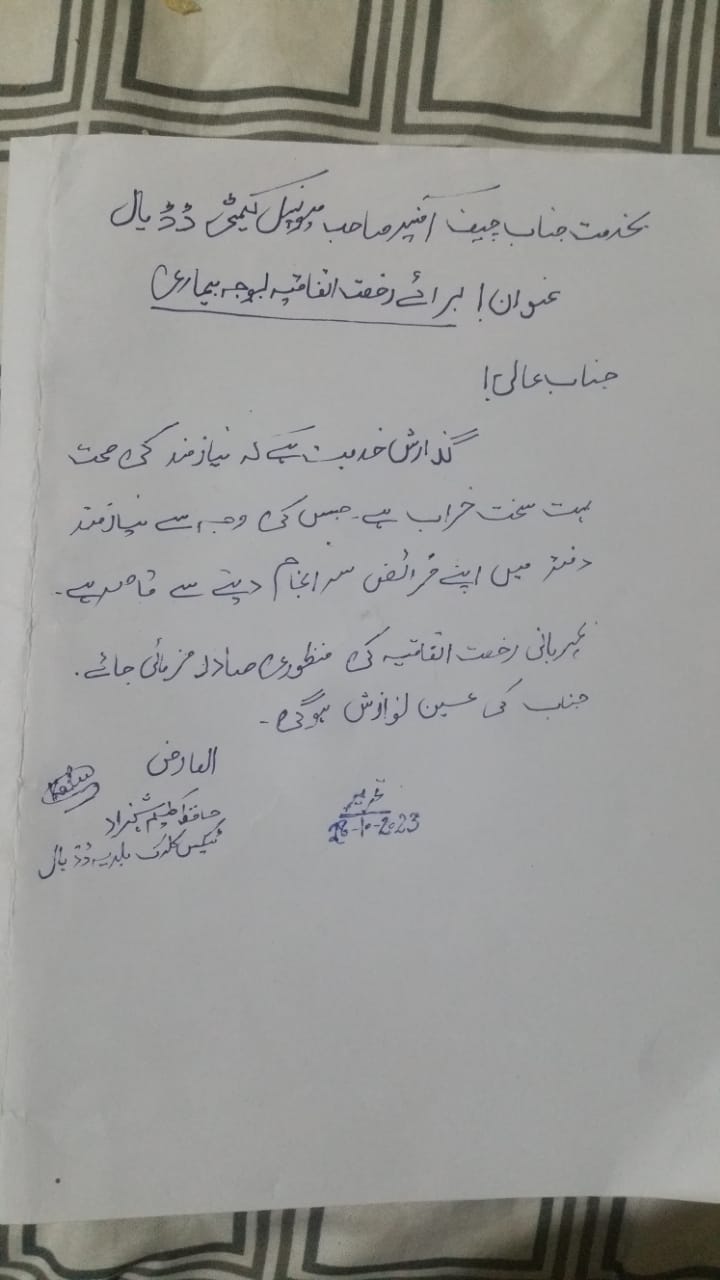 بخدمت جناب چیف آفیسر صاحب میونسپل کمیٹی ڈڈیال
عنوان! برائے رخصت اتفاقیہ بوجہ بیماری
جناب عالی!
گذارش خدمت ہے کہ نیازمند کی صحت
بہت سخت خراب ہے۔ جس کی وجہ سے نیازمند
دفتر میں اپنے فرائض سرانجام دینے سے قاصر ہے۔
مہربانی رخصت اتفاقیہ کی منظوری صادر فرمائی جائے۔
جناب کی عین نوازش ہوگی۔
العارض
حافظ شہزاد
ٹیکس کلرک بلدیہ ڈڈیال
تحریر
-10-2023